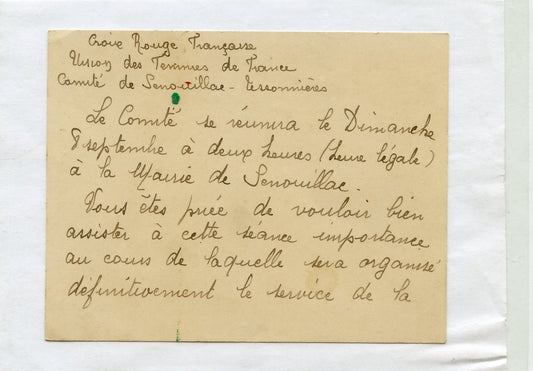 Croix Rouge Française
Union des Femmes de France
Comité de Senouillac - Tessonnières
Le Comité se réunira le Dimanche
8 septembre à deux heures (heure légale)
à la Mairie de Senouillac.
Vous êtes priée de vouloir bien
assister à cette séance importance
au cours de laquelle sera organisé
définitivement le service de la